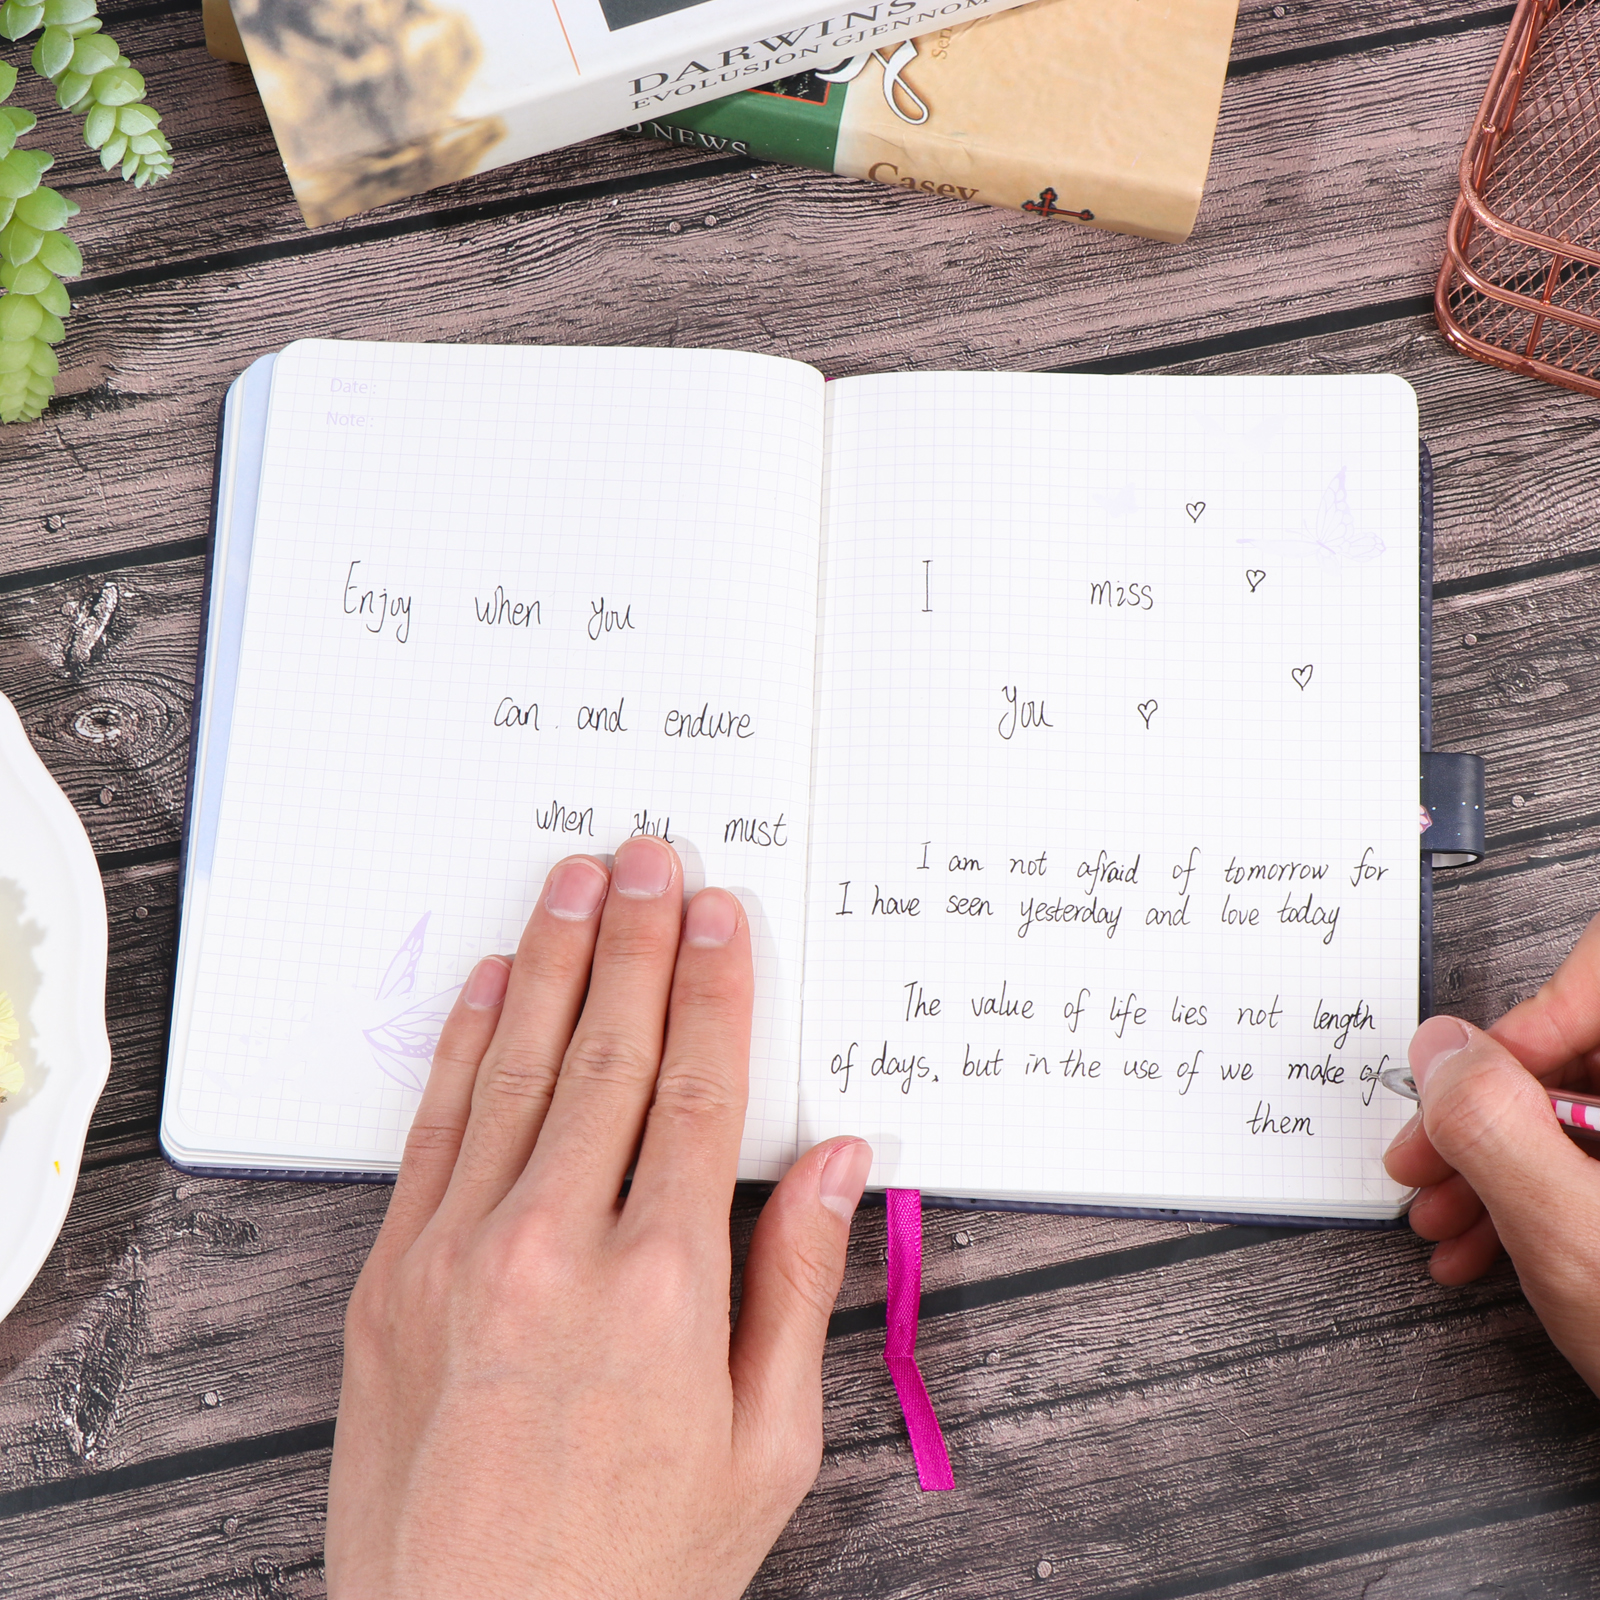 DARWINS
EVOLUSJON GJENNOM
NEWS
Casey
Date:
Note:
Enjoy when you
can. and endure
when you must
I miss
you
I am not afraid of tomorrow for
I have seen yesterday and love today
The value of life lies not length
of days. but in the use of we make of
them